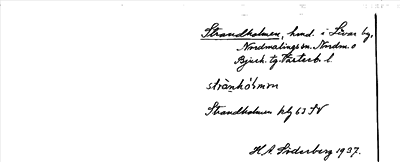 Strandholmen, hmd. i Levar by,
Nordmalings sn. Nordm. o
Bjurh. tg. Västerb. l.
strànhóḷmɷn
Strandholmen kbl 63 SV
H. A. Söderberg 1937.